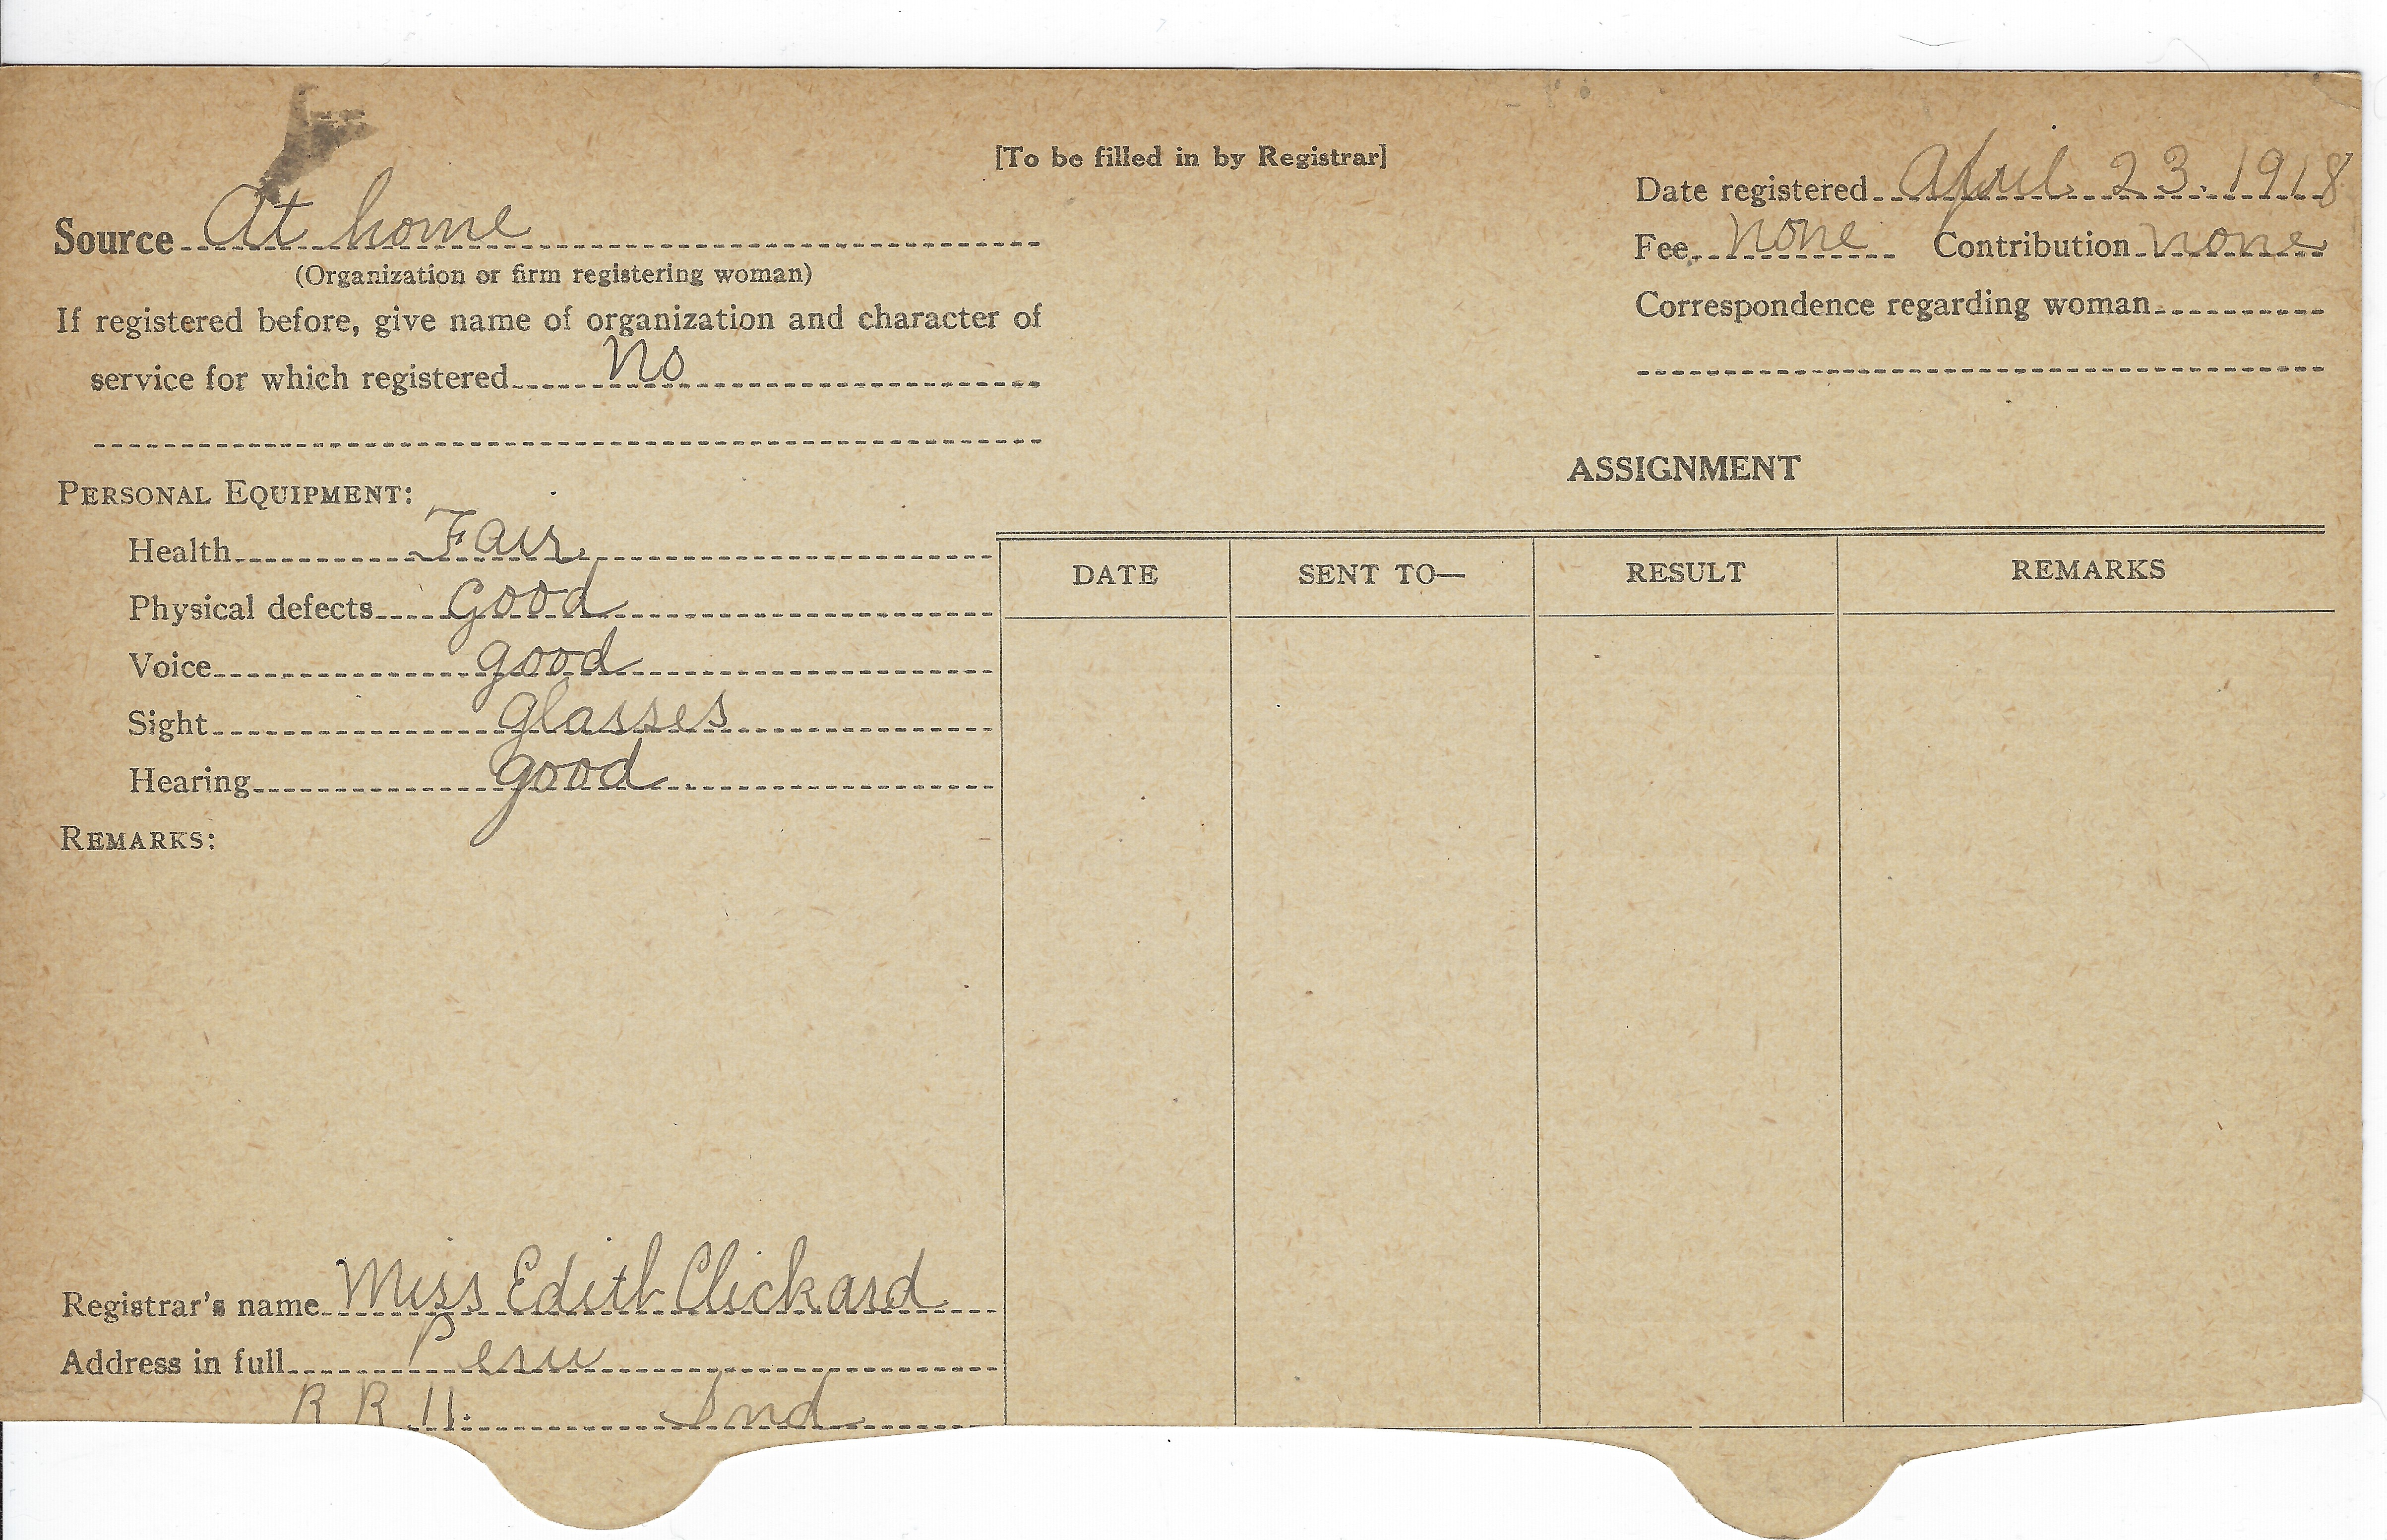 [To be filled in by Registrar]
Source At home
(Organization or firm registering woman)
If registered before, give name of organization and character of
service for which registered No
Date registered April 23. 1918
Fee none Contribution none
Correspondence regarding woman
PERSONAL EQUIPMENT:
Health Fair
Physical defects Good
Voice good
Sight glasses
Hearing good
REMARKS:
Registrar's name Miss Edith Clickard
Address in full Peru
R R 11. Ind
ASSIGNMENT
DATE SENT TO— RESULT REMARKS